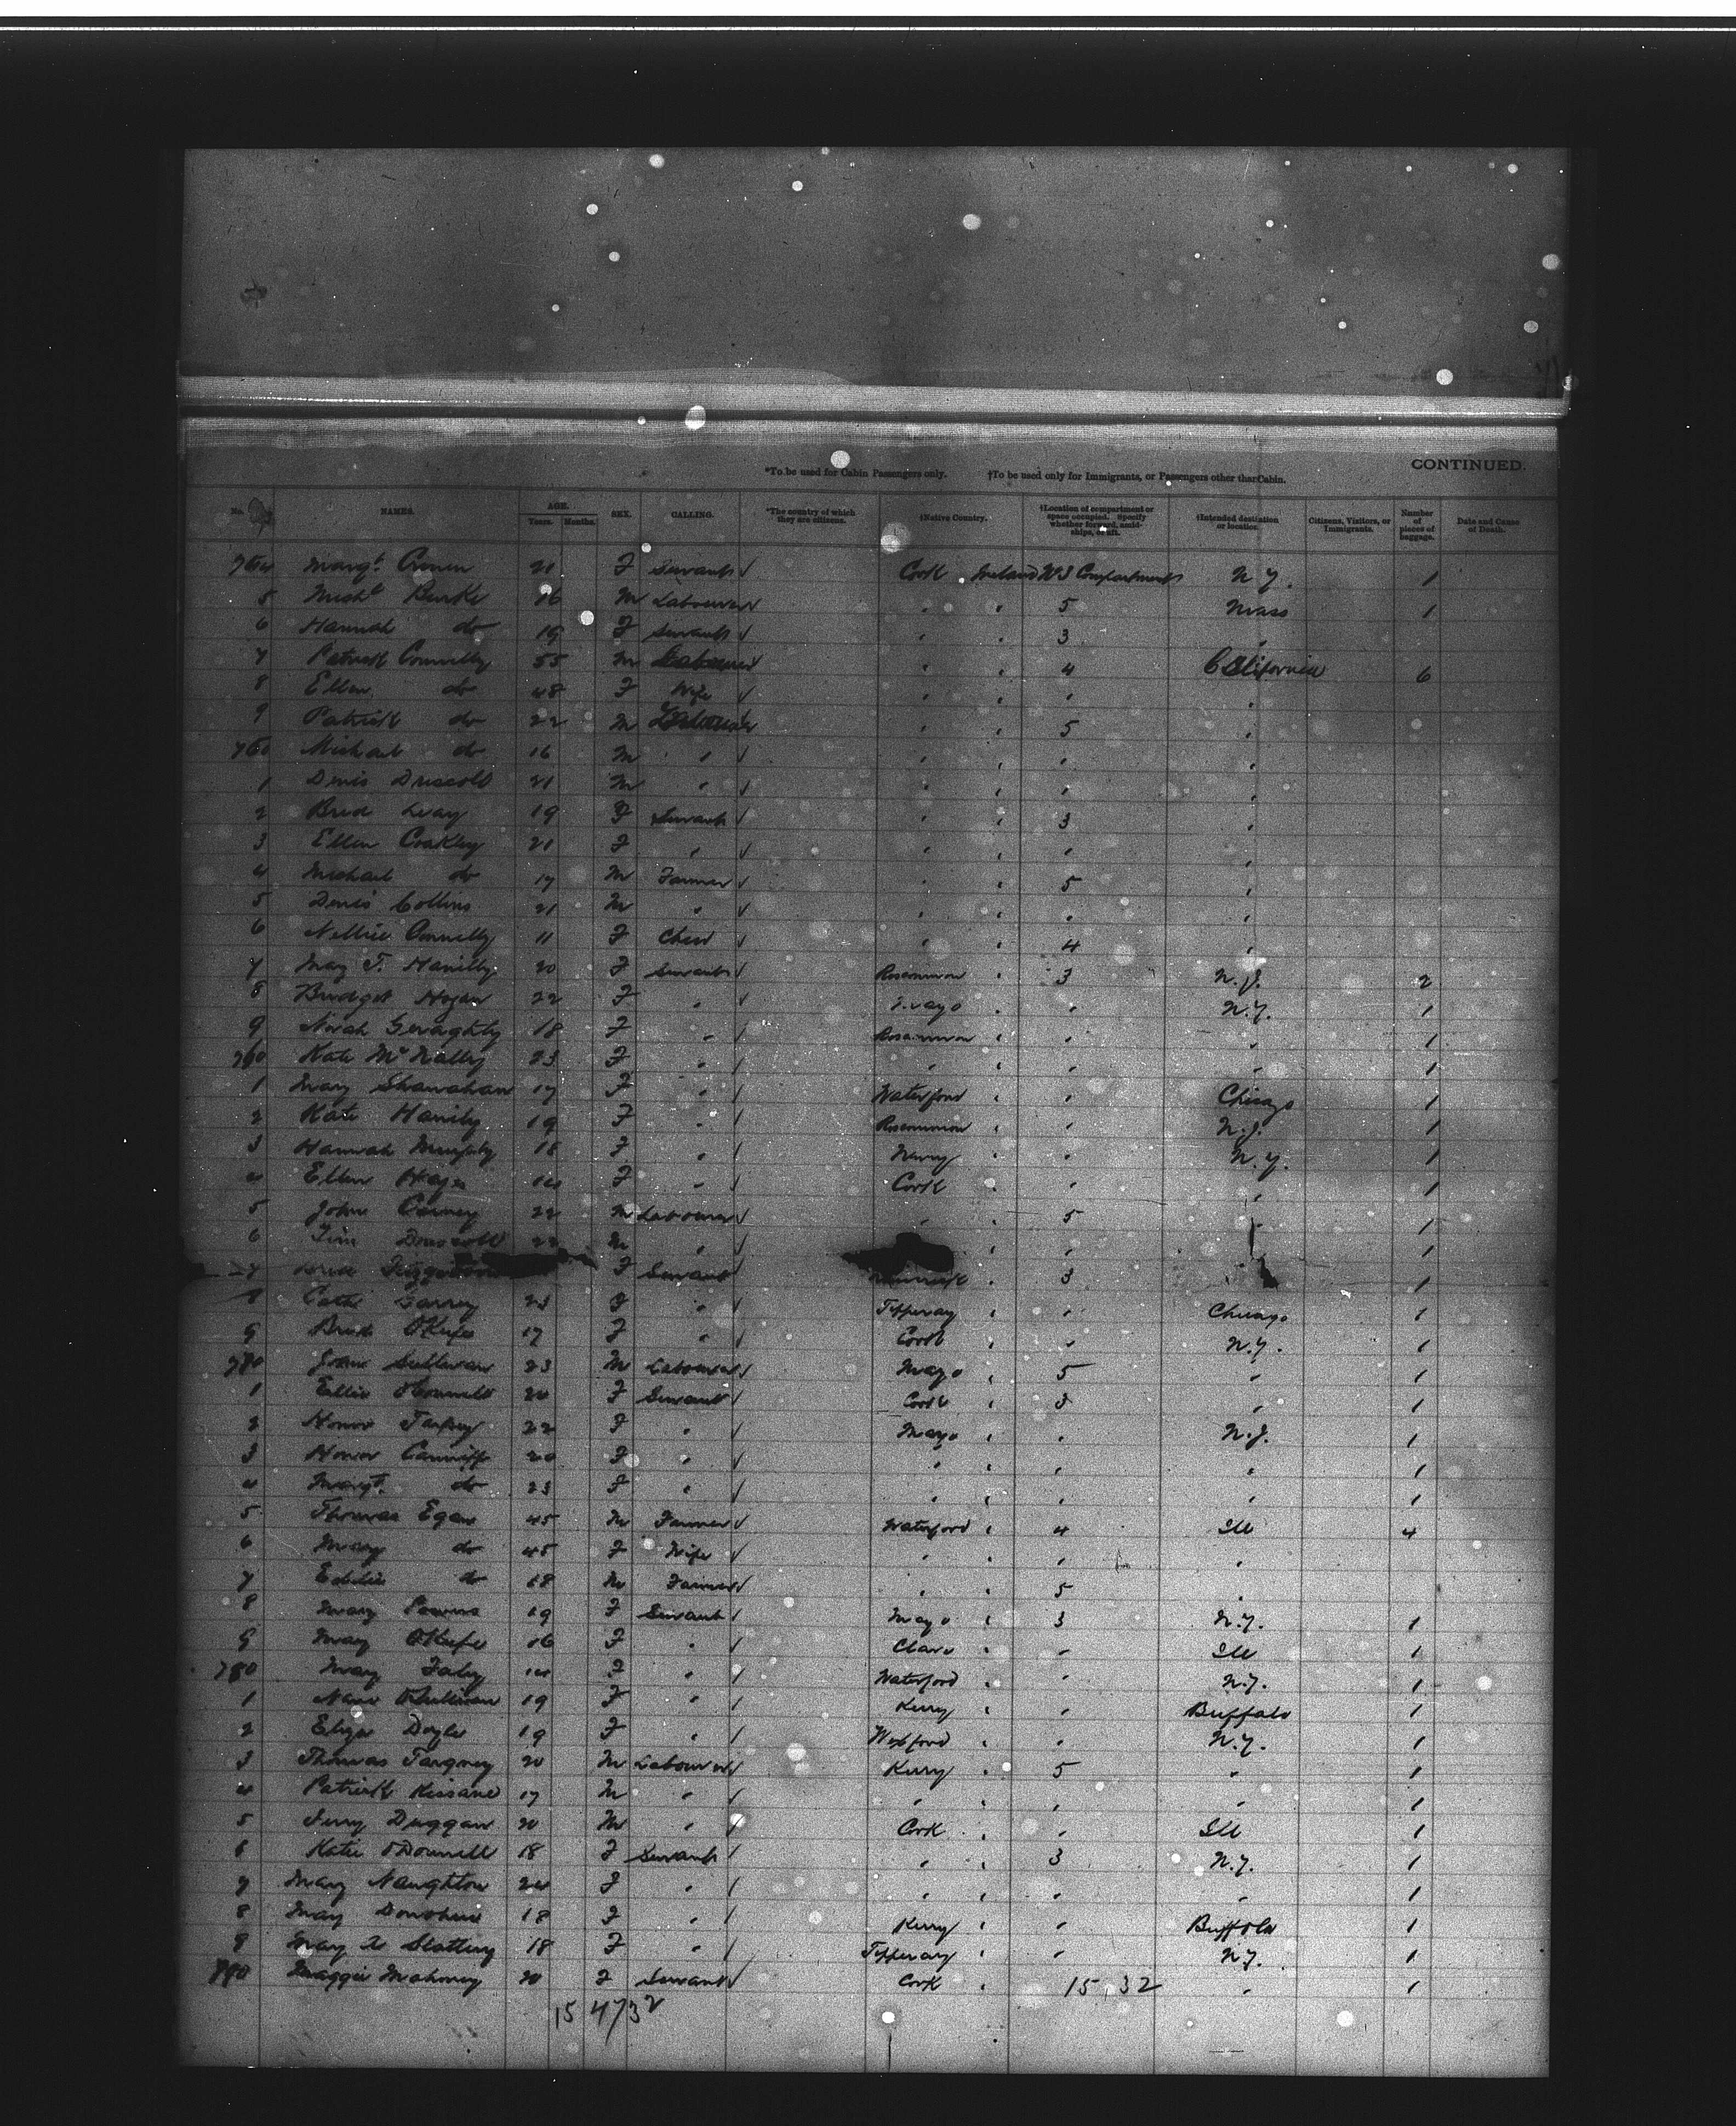 CONTINUED.
*To be used for Cabin Passengers only. †To be used only for Immigrants, or Passengers other than Cabin.
No. NAMES. AGE. Years. Months. SEX. CALLING. *The country of which they are citizens. †Native Country. †Location of compartment or space occupied. Specify whether forward, amidships, or aft. †Intended destination or location. Citizens, Visitors, or Immigrants. Number of pieces of baggage. Date and Cause of Death.
Margt. Cronin 21 F Servant Cork Ireland Compartment N.Y. 1
5 Michl Burke M Labourer " " 5 Mass 1
6 Hannah do 19 F Servant " " 3 "
7 Patrick Connelly 55 M Labourer " " 4 California 6
8 Ellen do 48 F Wife " " " "
9 Patrick do 22 M Labourer " " 5 "
760 Michael do 16 M " " " " "
1 Denis Driscoll 21 M " " " " "
2 Brid Leary 19 F Servant " " 3 "
3 Ellen Coakley 21 F " " " " "
4 Michael do 17 M Farmer " " 5 "
5 Denis Collins 21 M " " " " "
6 Nellie Connelly 11 F Child " " 4 "
7 Mary T. Hanilly 20 F Servant Roscommon " 3 N.J. 2
8 Bridget Hogan 22 F " Mayo " " N.Y. 1
9 Norah Geraghty 18 F " Roscommon " " " 1
760 Kate McNally 23 F " " " " " 1
1 Mary Shanahan 17 F " Waterford " " Chicago 1
2 Kate Hanily 19 F " Roscommon " " N.J. 1
3 Hannah Murphy 18 F " " " N.Y. 1
4 Ellen 14 F " Cork " " " 1
5 John 22 M Labourer " " 5 " 1
6 Tim Driscoll 22 M " " " 1
7 F Servant " 3 1
8 Cath 23 F " Tipperary " " Chicago 1
9 Brid OKeefe 17 F " Cork " " N.Y. 1
780 John Sullivan 23 M Labourer Mayo " 5 " 1
1 Ellie 20 F Servant Cork " 3 " 1
2 Honor 22 F " Mayo " " N.J. 1
3 Honor Canniff 20 F " " " " " 1
4 Margt. do 23 F " " " " " 1
5 Thomas Egan 45 M Farmer Waterford " 4 Ill 4
6 Mary do 45 F Wife " " " "
7 Eddie do 18 M Farmer " " 5 "
8 Mary Powers 19 F Servant Mayo " 3 N.Y. 1
9 Mary OKeefe 16 F " Clare " " Ill 1
780 Mary Foley 14 F " Waterford " " N.Y. 1
1 OSullivan 19 F " Kerry " " Buffalo 1
2 Eliza Doyle 19 F " Wexford " " N.Y. 1
3 Thomas 20 M Labourer Kerry " 5 " 1
4 Patrick Kissane 17 M " " " " " 1
5 Jerry Duggan 20 M " Cork " " Ill 1
6 Katie ODonnell 18 F Servant " " 3 N.Y. 1
7 Mary Naughton 24 F " " " " " 1
8 May Donohue 18 F " Kerry " " Buffalo 1
9 Mary Slattery 18 F " Tipperary " " N.Y. 1
Maggie Mahoney 20 F Servant Cork " 15.32 " 1
15 4732